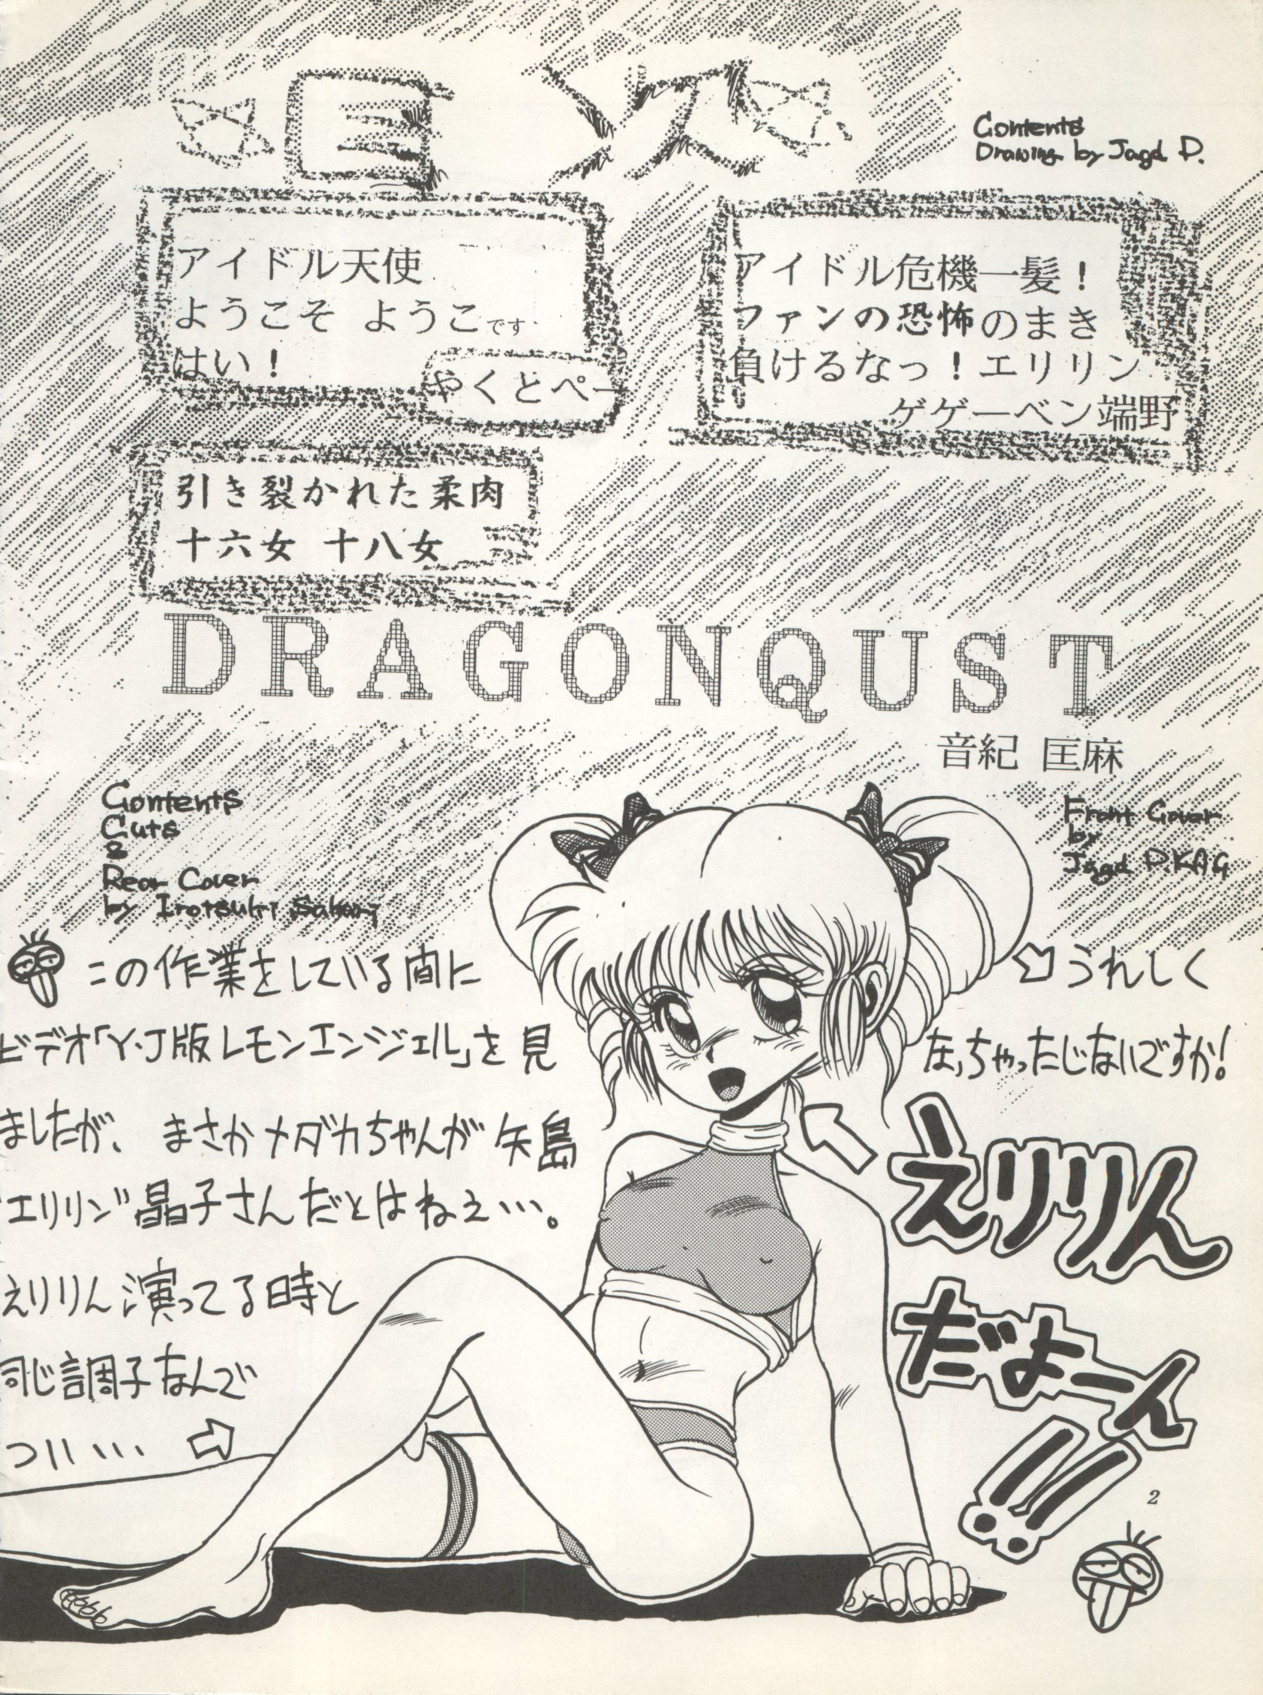 目次
Contents
Drawing by Jagd P.
アイドル天使
ようこそ ようこです
はい！
やくとペー
アイドル危機一髪！
ファンの恐怖のまき
負けるなっ！エリリン
ゲゲーベン端野
引き裂かれた柔肉
十六女 十八女
DRAGONQUST
音紀 匡麻
Contents
Cuts
&
Rear Cover
by Irotsuki Sakari
Front Cover
by
Jagd P.KAG
この作業をしている間に
ビデオ「Y・J版レモンエンジェル」を見
ましたが、まさかメダカちゃんが矢島
"エリリン"晶子さんだとはねぇ…。
えりりん演ってる時と
同じ調子なんで
つい…
うれしく
なっちゃったじないですか!
えりりん
だよーん!!
2